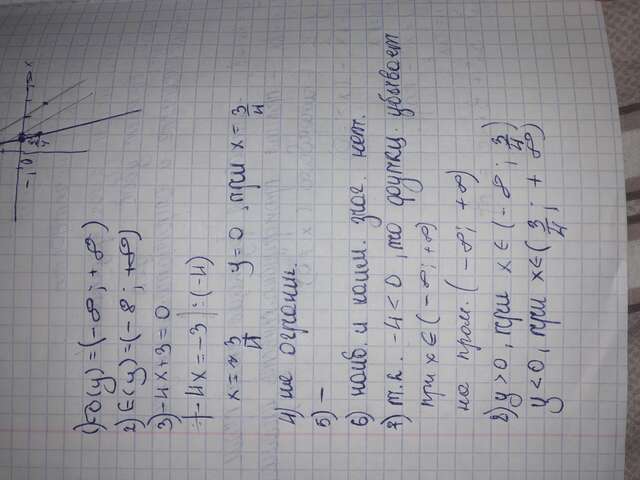 -1 0 3/4 x
1) D(y) = (-∞; +∞)
2) E(y) = (-∞; +∞)
3) -4x+3=0
-4x = -3 | :(-4)
x = 3/4 y=0, при x = 3/4
4) не огранич.
5) —
6) наиб. и наим. знач. нет.
7) т.к. -4<0, то функц. убывает
при x∈(-∞; +∞)
на пром. (-∞; +∞)
8) y>0, при x∈(-∞; 3/4)
y<0, при x∈(3/4; +∞)